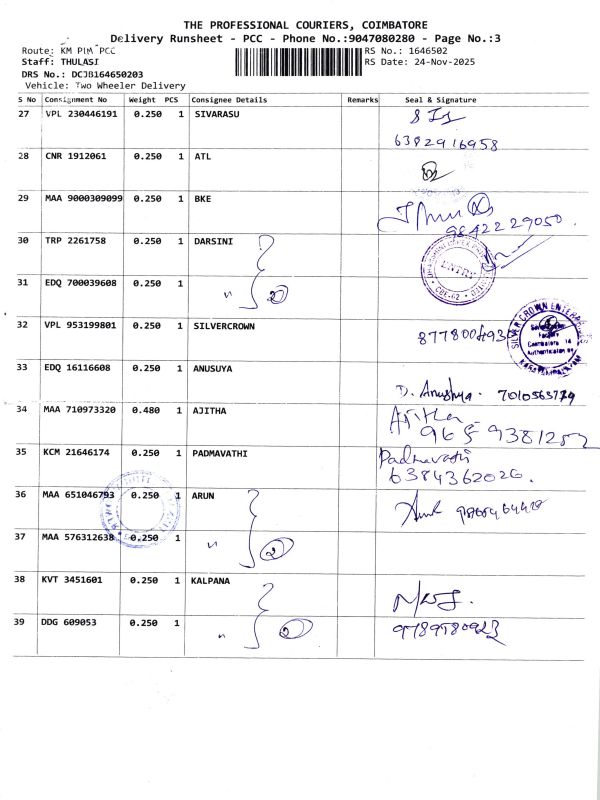 THE PROFESSIONAL COURIERS, COIMBATORE
Delivery Runsheet - PCC - Phone No.:9047080280 - Page No.:3
Route: KM PIM PCC
RS No.: 1646502
Staff: THULASI
RS Date: 24-Nov-2025
DRS No.: DCJB164650203
Vehicle: Two Wheeler Delivery
S No Consignment No Weight PCS Consignee Details Remarks Seal & Signature
27 VPL 230446191 0.250 1 SIVARASU
6382916958
28 CNR 1912061 0.250 1 ATL
29 MAA 9000309099 0.250 1 BKE
9842229050.
30 TRP 2261758 0.250 1 DARSINI
ENTRY
31 EDQ 700039608 0.250 1 " 2
32 VPL 953199801 0.250 1 SILVERCROWN
SILVER CROWN ENTERPRISES
33 EDQ 16116608 0.250 1 ANUSUYA
D. Anushya. 7010563779
34 MAA 710973320 0.480 1 AJITHA
Ajitha
35 KCM 21646174 0.250 1 PADMAVATHI
Padmavathi
6384362026.
36 MAA 651046793 0.250 1 ARUN
37 MAA 576312638 0.250 1 " 2
38 KVT 3451601 0.250 1 KALPANA
39 DDG 609053 0.250 1 " 2